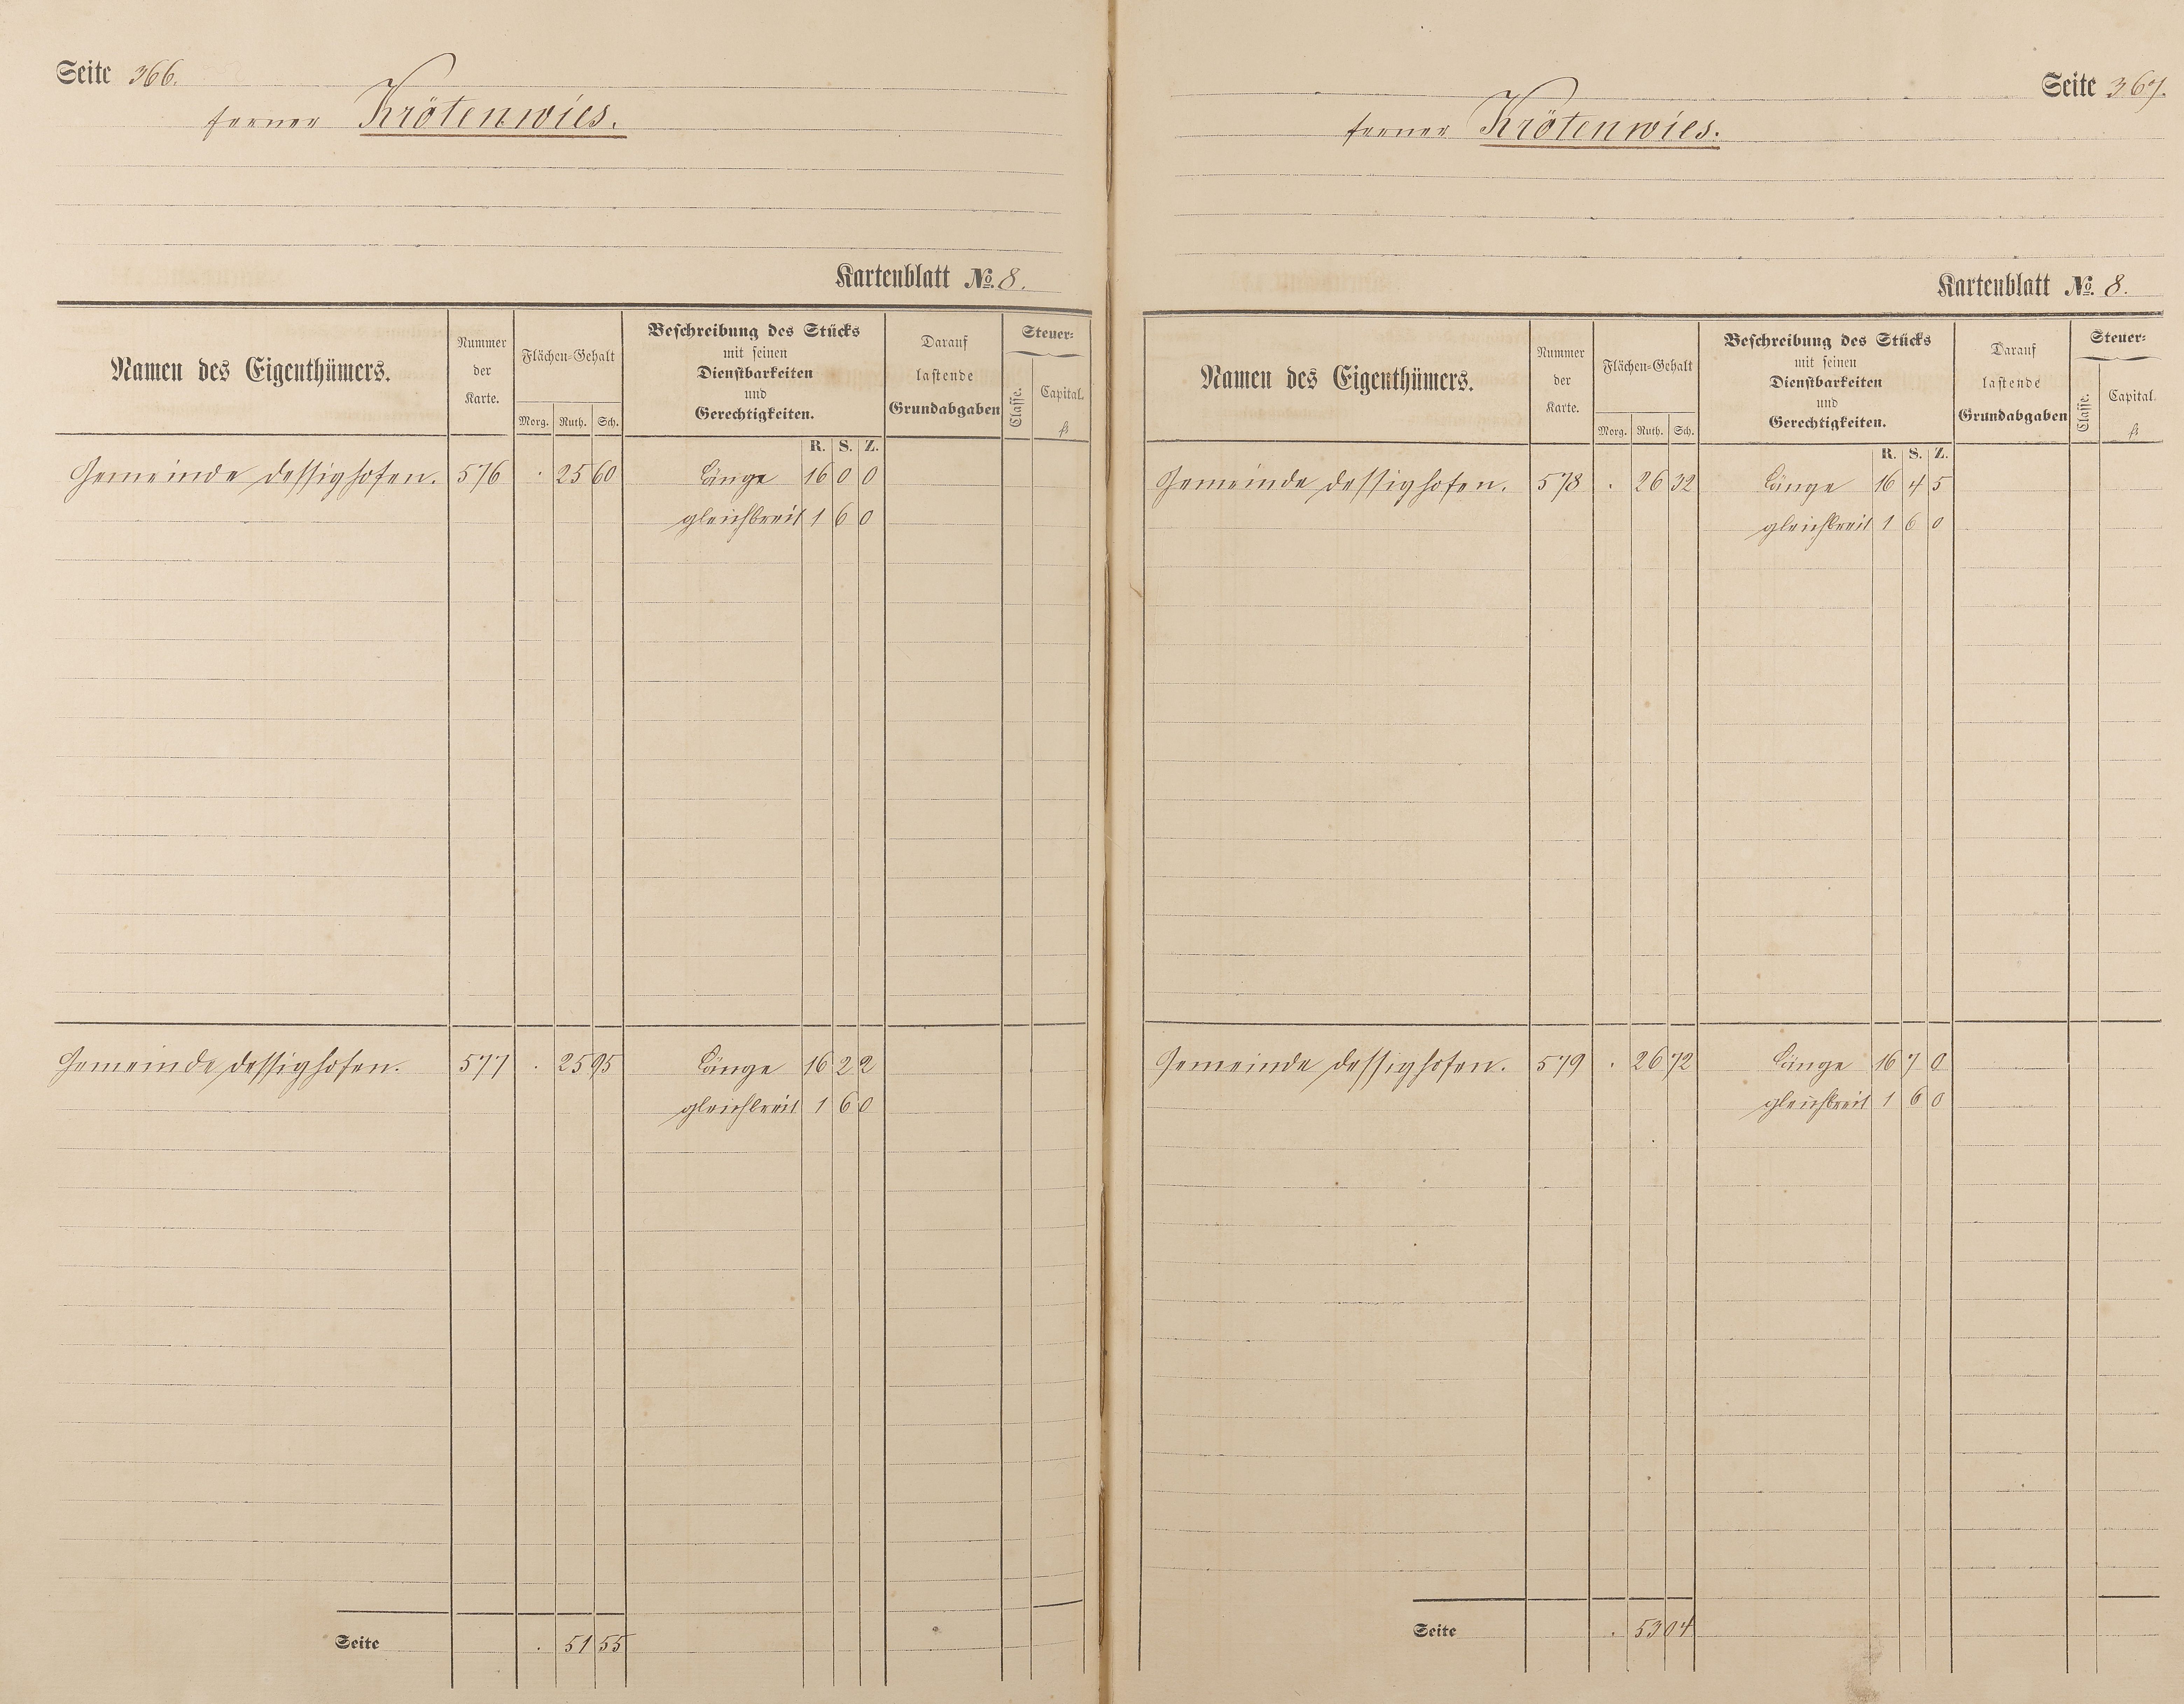 Seite 366.
ferner Krötenwies.
Kartenblatt No. 8.
Namen des Eigenthümers.
Nummer der Karte.
Flächen=Gehalt
Morg. Ruth. Sch.
Beschreibung des Stücks
mit seinen
Dienstbarkeiten
und
Gerechtigkeiten.
Darauf
lastende
Grundabgaben
Steuer=
Classe.
Capital.
R. S. Z.
Gemeinde Dessighofen. 576 . 25 60 Länge 16 0 0
gleichbreit 1 6 0
Gemeinde Dessighofen. 577 . 25 95 Länge 16 2 2
gleichbreit 1 6 0
Seite . 51 55
Seite 367.
ferner Krötenwies.
Kartenblatt No. 8.
Namen des Eigenthümers.
Nummer der Karte.
Flächen=Gehalt
Morg. Ruth. Sch.
Beschreibung des Stücks
mit seinen
Dienstbarkeiten
und
Gerechtigkeiten.
Darauf
lastende
Grundabgaben
Steuer=
Classe.
Capital.
R. S. Z.
Gemeinde Dessighofen. 578 . 26 32 Länge 16 4 5
gleichbreit 1 6 0
Gemeinde Dessighofen. 579 . 26 72 Länge 16 7 0
gleichbreit 1 6 0
Seite . 53 04